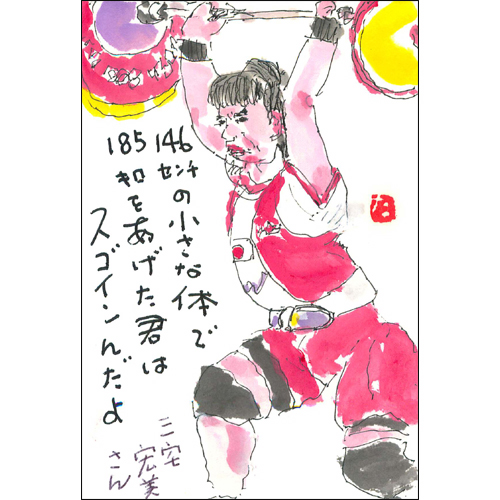 146センチの小さな体で
185キロをあげた君は
スゴインんだよ
三宅
宏美
さん